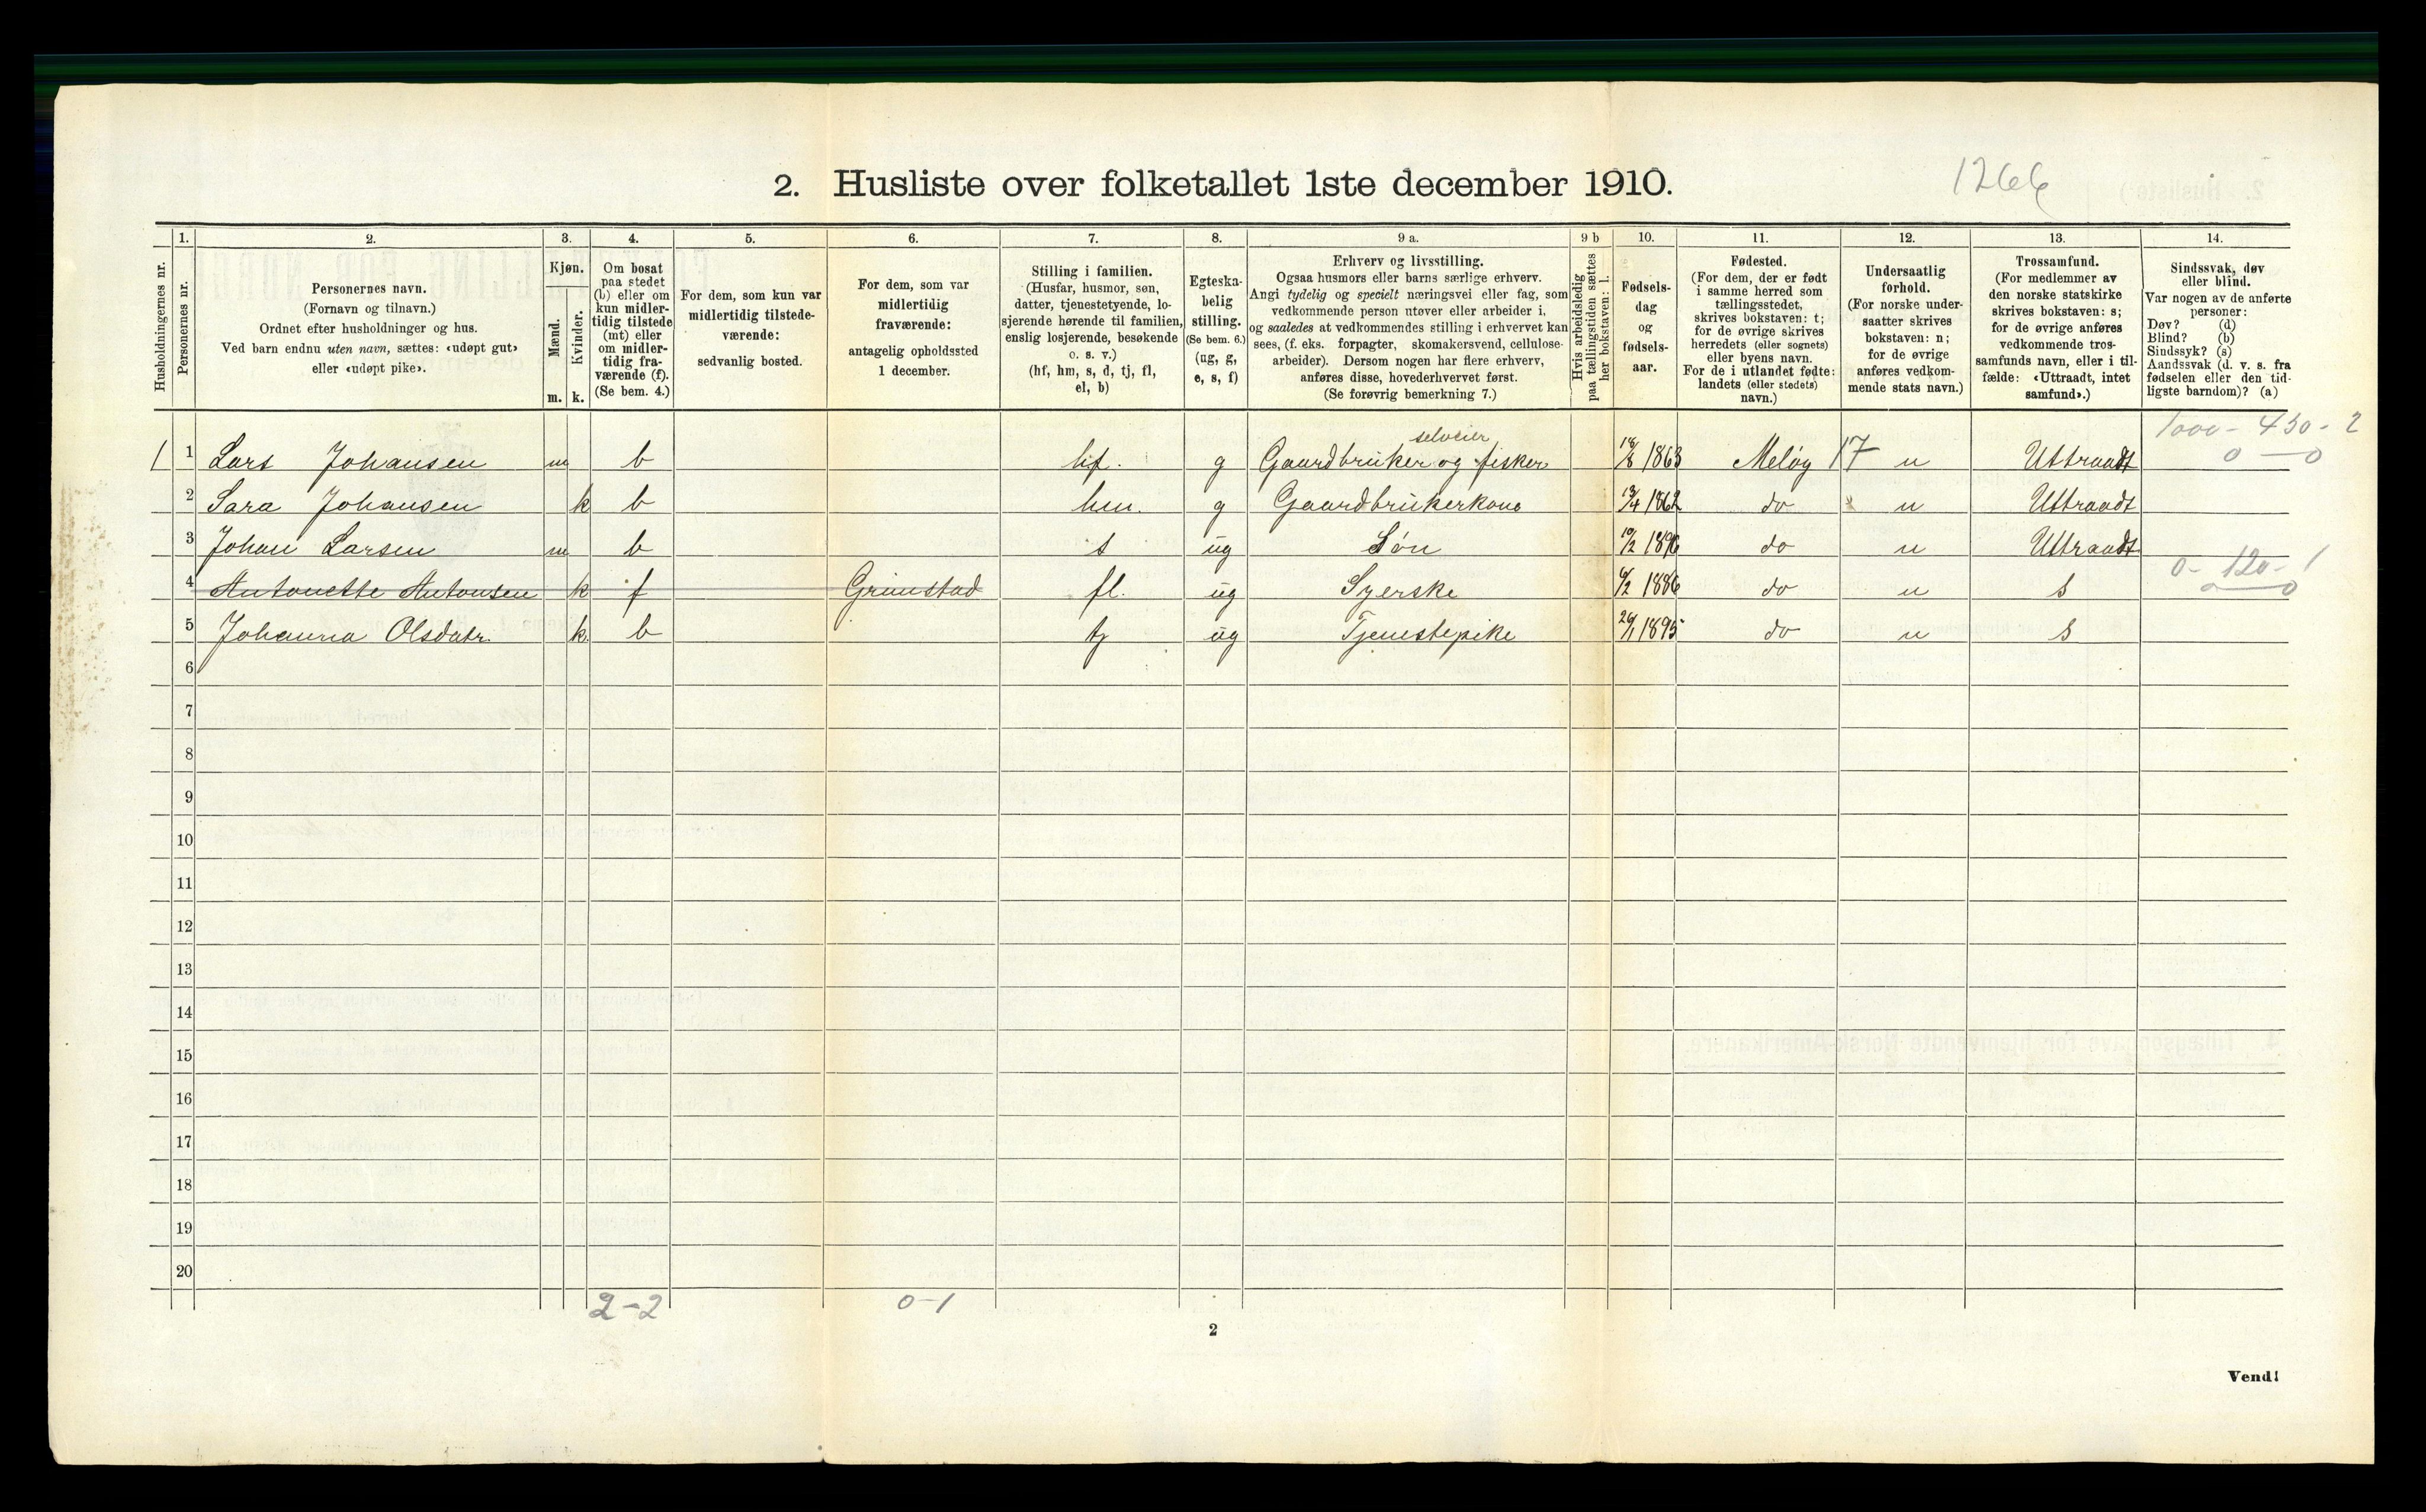 1266
2. Husliste over folketallet 1ste december 1910.
Husholdningernes nr.
1.
Personernes nr.
2.
Personernes navn.
(Fornavn og tilnavn.)
Ordnet efter husholdninger og hus.
Ved barn endnu uten navn, sættes: «udøpt gut»
eller «udøpt pike».
3.
Kjøn.
Mænd.
Kvinder.
m. k.
4.
Om bosat
paa stedet
(b) eller om
kun midler-
tidig tilstede
(mt) eller
om midler-
tidig fra-
værende (f).
(Se bem. 4.)
5.
For dem, som kun var
midlertidig tilstede-
værende:
sedvanlig bosted.
6.
For dem, som var
midlertidig
fraværende:
antagelig opholdssted
1 december.
7.
Stilling i familien.
(Husfar, husmor, søn,
datter, tjenestetyende, lo-
sjerende hørende til familien,
enslig losjerende, besøkende
o. s. v.)
(hf, hm, s, d, tj, fl,
el, b)
8.
Egteska-
belig
stilling.
(Se bem. 6.)
(ug, g,
e, s, f)
9 a.
Erhverv og livsstilling.
Ogsaa husmors eller barns særlige erhverv.
Angi tydelig og specielt næringsvei eller fag, som
vedkommende person utøver eller arbeider i,
og saaledes at vedkommendes stilling i erhvervet kan
sees, (f. eks. forpagter, skomakersvend, cellulose-
arbeider). Dersom nogen har flere erhverv,
anføres disse, hovederhvervet først.
(Se forøvrig bemerkning 7.)
9 b
Hvis arbeidsledig
paa tællingstiden sættes
her bokstaven: l.
10.
Fødsels-
dag
og
fødsels-
aar.
11.
Fødested.
(For dem, der er født
i samme herred som
tællingsstedet,
skrives bokstaven: t;
for de øvrige skrives
herredets (eller sognets)
eller byens navn.
For de i utlandet fødte:
landets (eller stedets)
navn.)
12.
Undersaatlig
forhold.
(For norske under-
saatter skrives
bokstaven: n;
for de øvrige
anføres vedkom-
mende stats navn.)
13.
Trossamfund.
(For medlemmer av
den norske statskirke
skrives bokstaven: s;
for de øvrige anføres
vedkommende tros-
samfunds navn, eller i til-
fælde: «Uttraadt, intet
samfund».)
14.
Sindssvak, døv
eller blind.
Var nogen av de anførte
personer:
Døv? (d)
Blind? (b)
Sindssyk? (s)
Aandssvak (d. v. s. fra
fødselen eller den tid-
ligste barndom)? (a)
1000 - 430 - 2
selveier
1 1 Lars Johansen m b hf. g Gaardbruker og fisker 18/8 1863 Meløy 17 n Uttraadt 0 — 0
2 Sara Johansen k b hm. g Gaardbrukerkone 13/4 1862 do n Uttraadt
3 Johan Larsen m b s ug Søn 10/2 1896 do n Uttraadt
0 - 120 - 1
4 Antonette Antonsen k f Grimstad fl. ug Syerske 6/2 1886 do n s 0 — 0
5 Johanna Olsdatr. k. b tj ug Tjenestepike 26/1 1895 do n s
6
7
8
9
10
11
12
13
14
15
16
17
18
19
20
2-2 0-1
2
Vend!